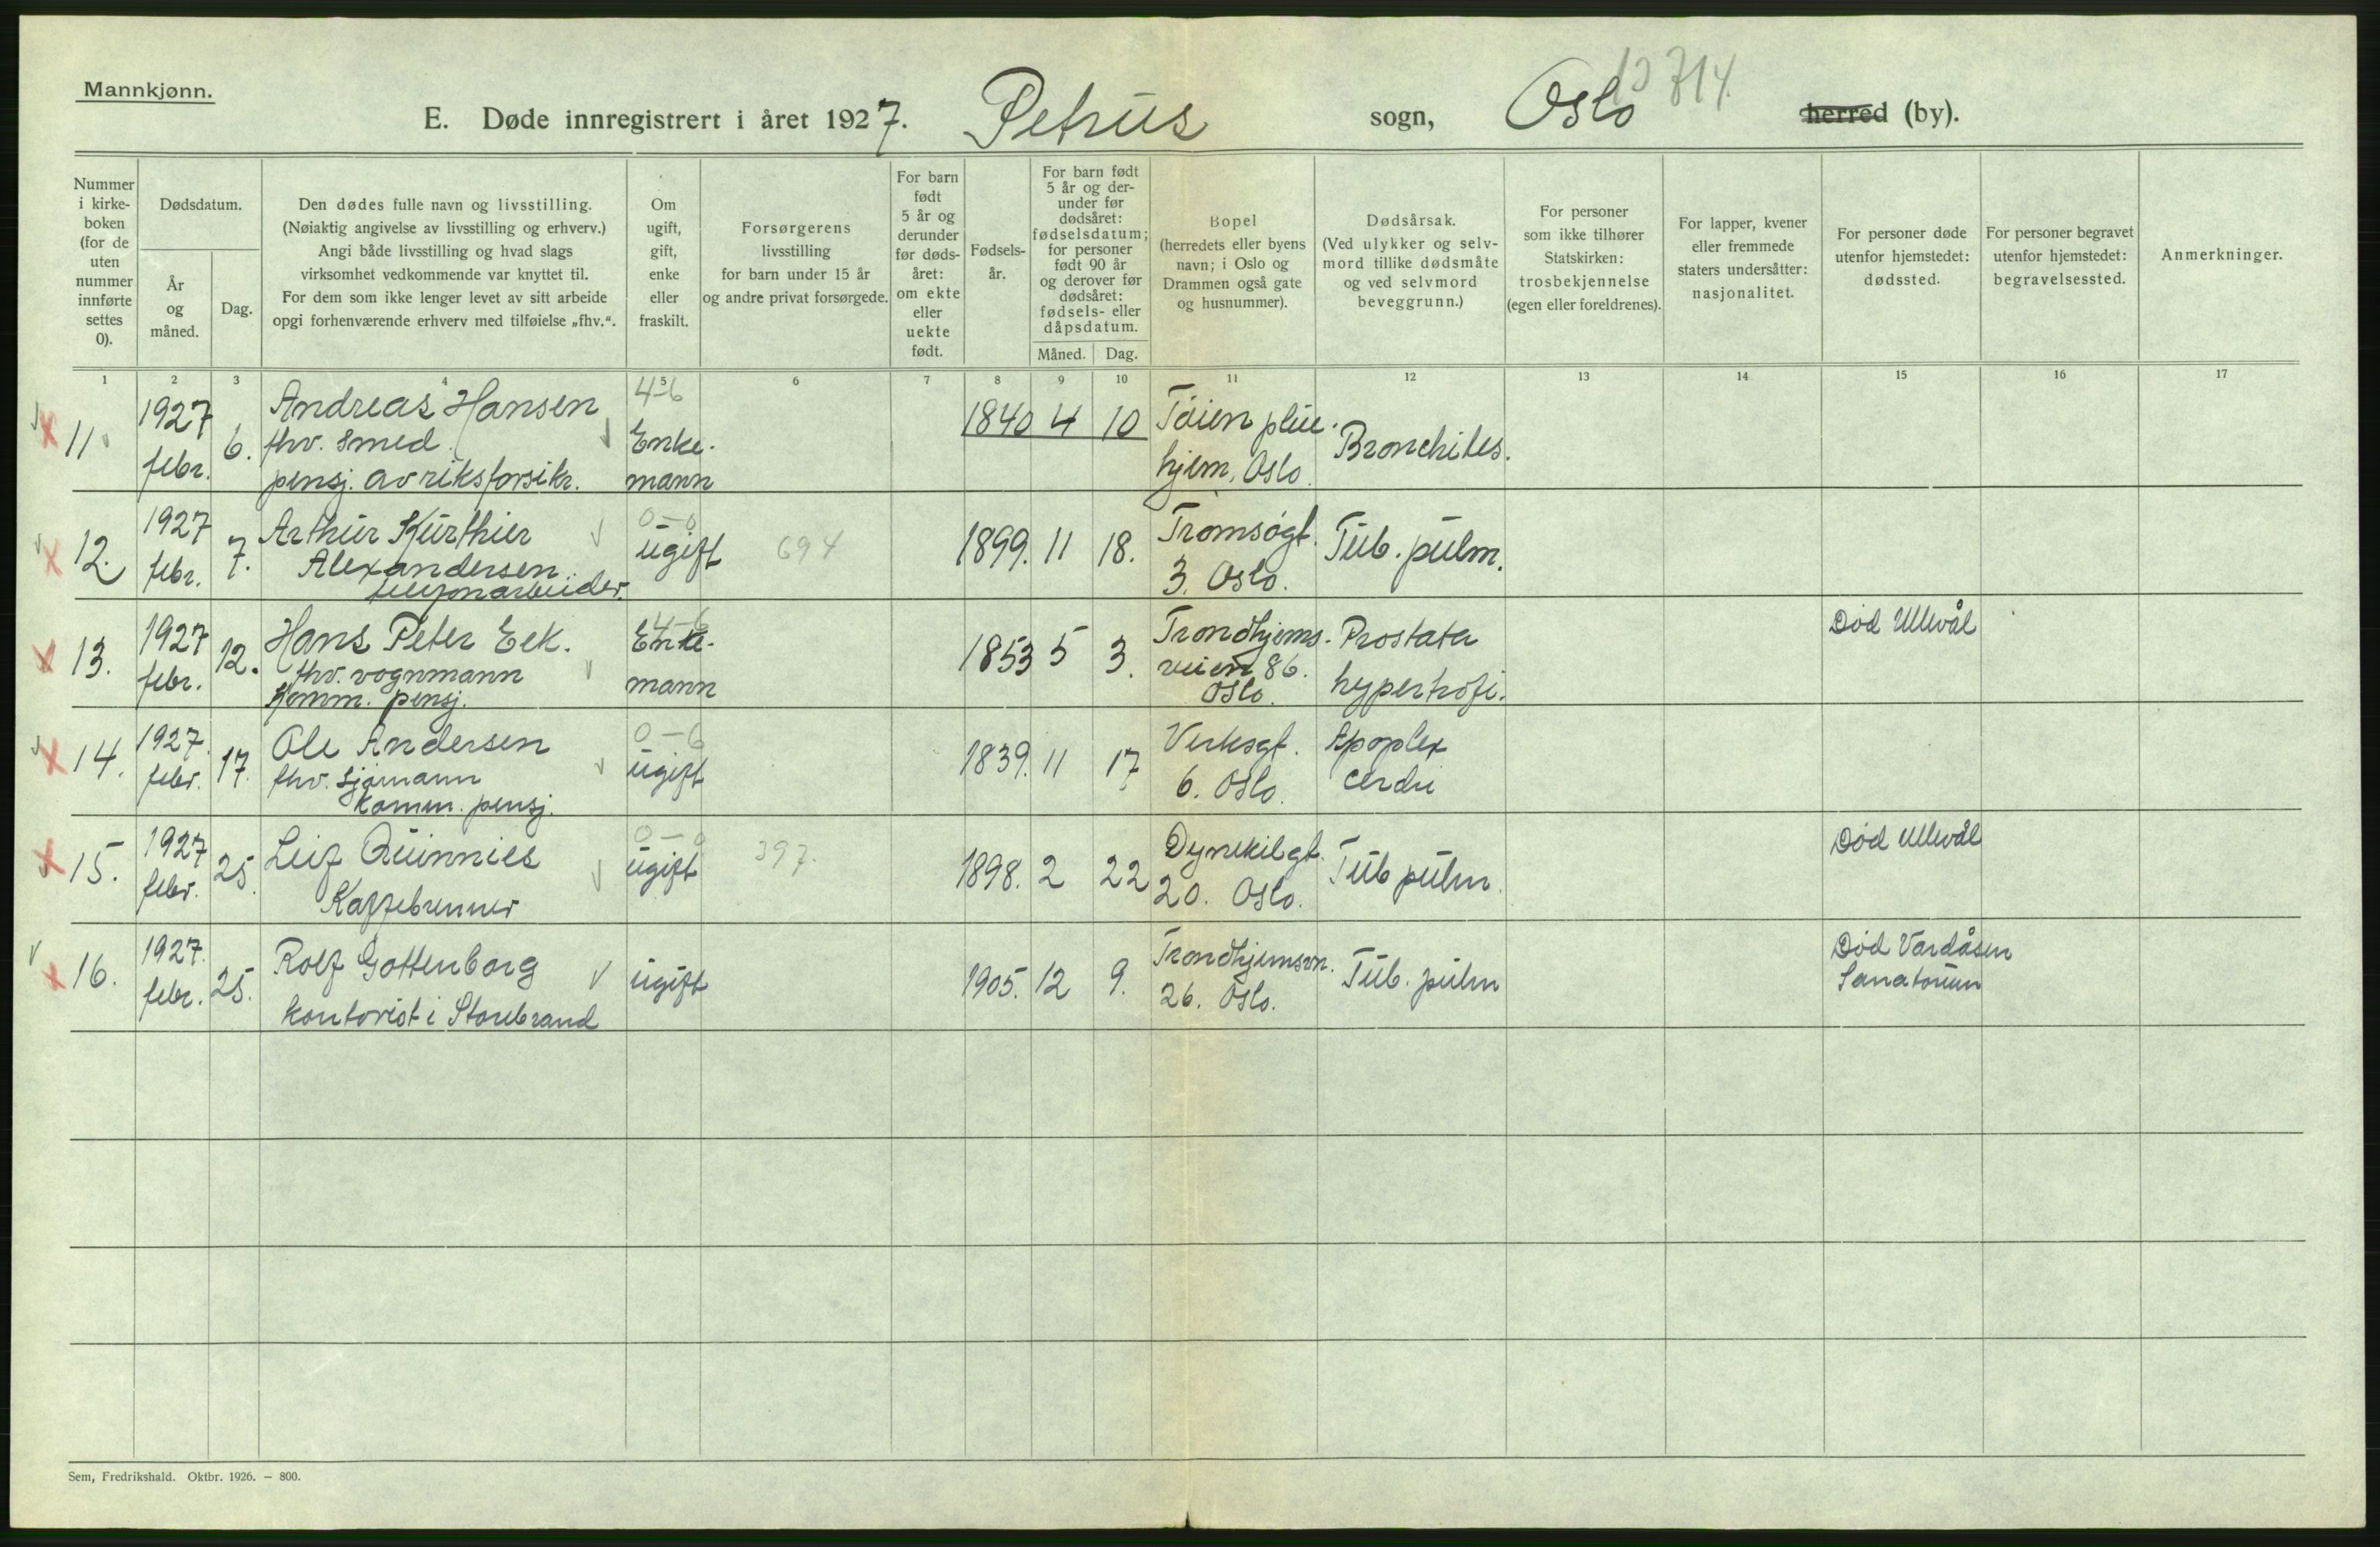 Mannkjønn.
E. Døde innregistrert i året 1927. Petrus sogn, Oslo herred (by).
13 714.
Nummer
i kirke-
boken
(for de
uten
nummer
innførte
settes
0).
Dødsdatum.
År
og
måned.
Dag.
Den dødes fulle navn og livsstilling.
(Nøiaktig angivelse av livsstilling og erhverv.)
Angi både livsstilling og hvad slags
virksomhet vedkommende var knyttet til.
For dem som ikke lenger levet av sitt arbeide
opgi forhenværende erhverv med tilføielse „fhv.“.
Om
ugift,
gift,
enke
eller
fraskilt.
Forsørgerens
livsstilling
for barn under 15 år
og andre privat forsørgede.
For barn
født
5 år og
derunder
før døds-
året:
om ekte
eller
uekte
født.
Fødsels-
år.
For barn født
5 år og der-
under før
dødsåret:
fødselsdatum;
for personer
født 90 år
og derover før
dødsåret:
fødsels- eller
dåpsdatum.
Måned. Dag.
Bopel
(herredets eller byens
navn; i Oslo og
Drammen også gate
og husnummer).
Dødsårsak.
(Ved ulykker og selv-
mord tillike dødsmåte
og ved selvmord
beveggrunn.)
For personer
som ikke tilhører
Statskirken:
trosbekjennelse
(egen eller foreldrenes).
For lapper, kvener
eller fremmede
staters undersåtter:
nasjonalitet.
For personer døde
utenfor hjemstedet:
dødssted.
For personer begravet
utenfor hjemstedet:
begravelsessted.
Anmerkninger.
1 2 3 4 5 6 7 8 9 10 11 12 13 14 15 16 17
4-6
11. 1927 febr. 6. Andreas Hansen
fhv. smed
pensj. av riksforsikr.
Enke-
mann
1840 4 10
Tøien pleie-
hjem, Oslo.
Bronchites.
0-6
12. 1927 febr. 7. Arthur Kurthier
Alexandersen
telefonarbeider.
ugift
694
1899. 11 18.
Tromsøgt.
3. Oslo.
Tub. pulm.
4-6
13. 1927 febr. 12. Hans Peter Eek.
fhv. vognmann
Komm. pensj.
Enke-
mann
1853 5 3.
Trondhjems-
veien 86.
Oslo.
Prostata
hypertrofi.
Død Ullevål
0-6
14. 1927. febr. 17. Ole Andersen
fhv. sjømann
komm. pensj.
ugift
1839. 11 17
Verksgt.
6. Oslo.
Apoplex
cerdri
0-0
15. 1927 febr. 25. Leif Quinnies
Kaffebrenner
ugift
397.
1898. 2 22
Dynekilgt.
20. Oslo.
Tub pulm.
Død Ullevål
16. 1927. febr. 25. Rolf Gottenborg
kontorist i Storebrand
ugift
1905. 12 9.
Trondhjemsvn.
26. Oslo.
Tub. pulm
Død Vardåsen
Sanatorium
Sem, Fredrikshald. Oktbr. 1926. – 800.